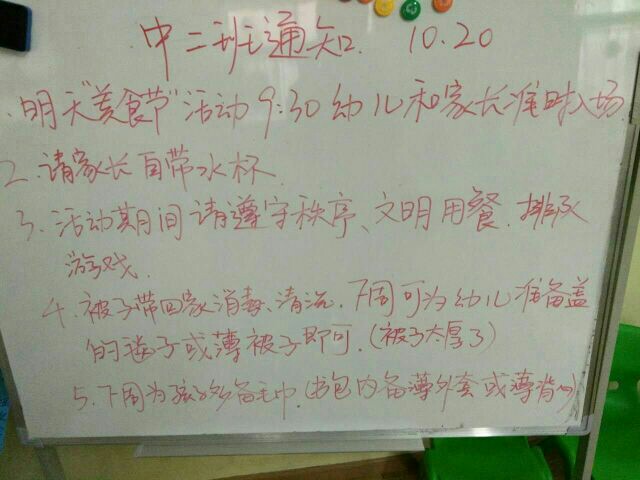 中二班通知 10.20
1.明天"美食节"活动9:30幼儿和家长准时入场
2.请家长自带水杯.
3.活动期间请遵守秩序、文明用餐.排队
游戏.
4.被子带回家消毒、清洗.下周可为幼儿准备盖
的毯子或薄被子即可.(被子太厚了)
5.下周为孩子多备毛巾.(书包内备薄外套或薄背心)